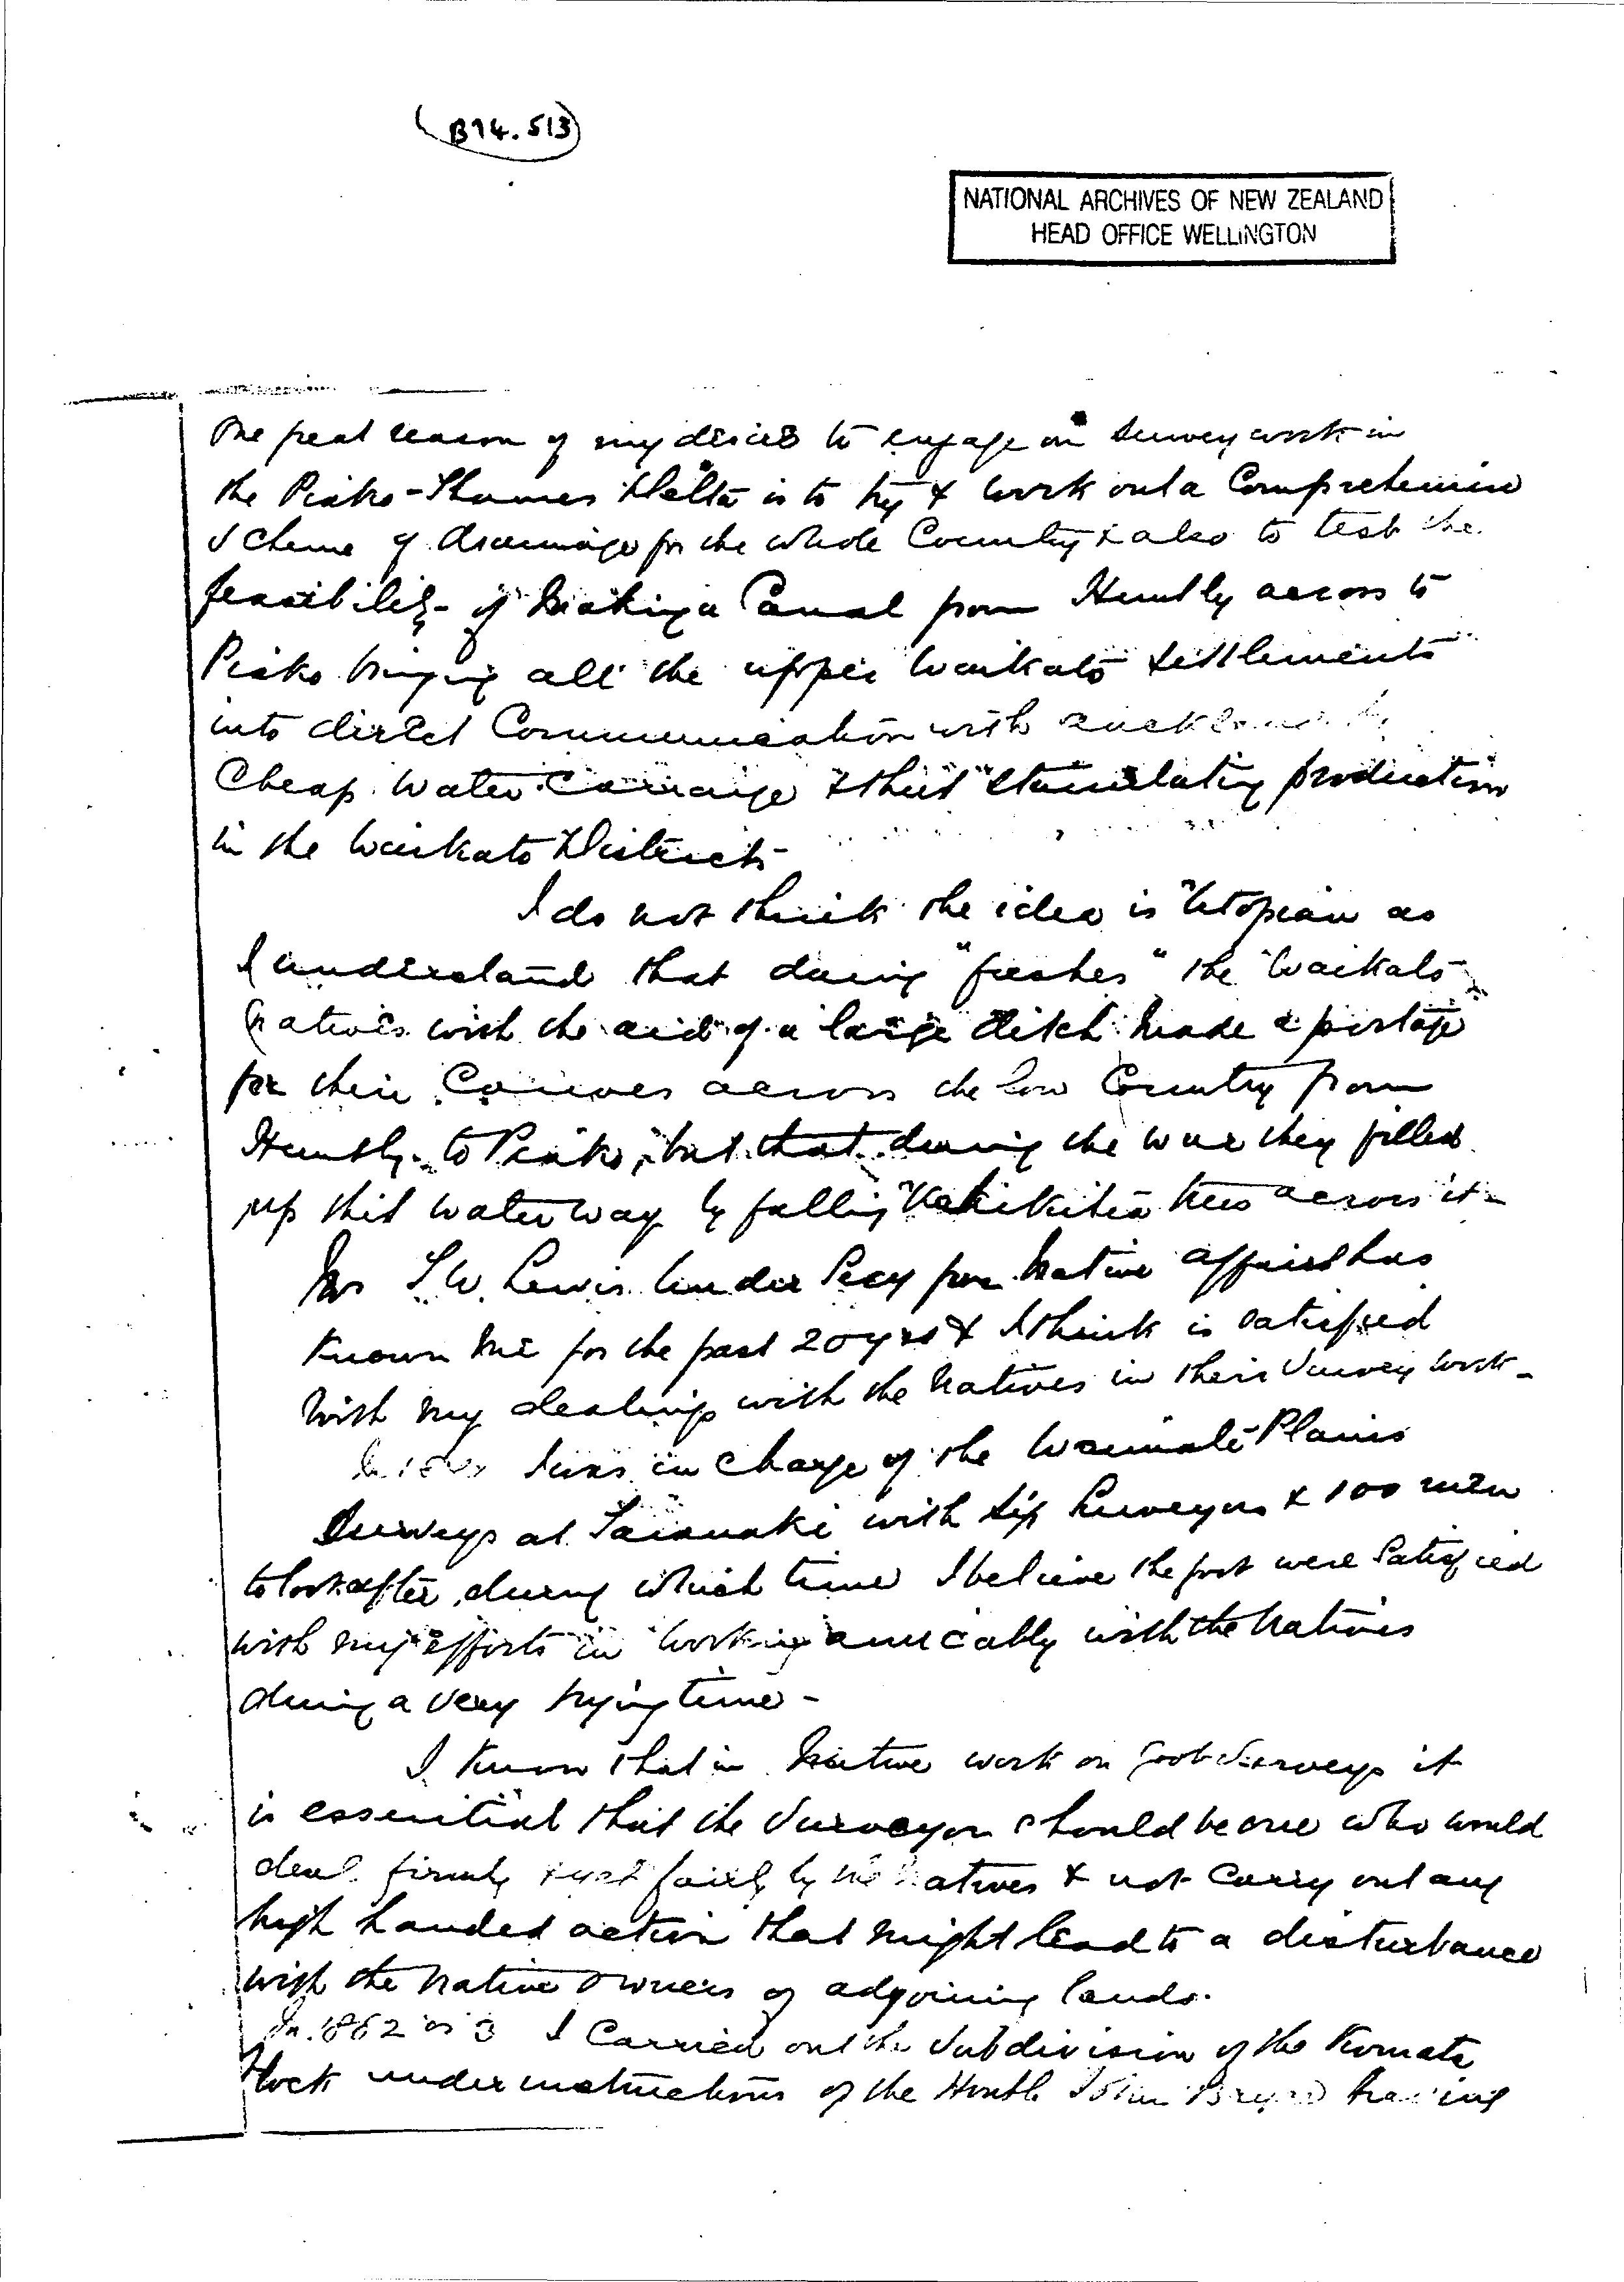 (B94.513)
NATIONAL ARCHIVES OF NEW ZEALAND
HEAD OFFICE WELLINGTON
One great reason of my desire to engage on survey work in
the Piako-Thames Delta is to try & work out a Comprehensive
Scheme of drainage for the whole Country & also to test the
feasibility of making a Canal from Huntly across to
Piako bringing all the upper Waikato settlements
into direct Communication with Auckland by
Cheap Water Carriage & thus stimulating production
in the Waikato District
I do not think the idea is Utopian as
I understand that during "freshes" the Waikato
Natives with the aid of a large ditch made a portage
for their Canoes across the low Country from
Huntly to Piako, but that during the war they filled
up this waterway by falling Kahikitea trees across it -
Mr T.W. Lewis Under Secy for Native Affairs has
Known me for the past 20 yrs & I think is satisfied
With my dealings with the Natives in their Survey work -
In I was in charge of the Waimate Plains
Surveys at Taranaki with six Surveyors & 100 men
to look after, during which time I believe the Govt were Satisfied
with my efforts in working amicably with the Natives
during a very trying time -
I Know that in Native work on Govt Surveys it
is essential that the Surveyor should be one who would
deal firmly & yet fairly by the Natives & not Carry out any
high handed action that might lead to a disturbance
with the Native Owners of adjoining lands.
In 1862 or 3 I Carried out the Subdivision of the Komata
Block under instructions of the Honble John Bryce having